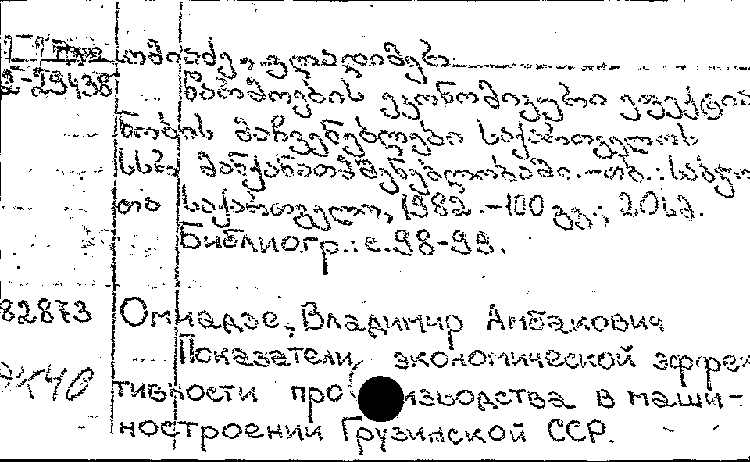 ომიაძე, ვლადიმერ
2-29438 წარმოების ეკონომიკური ეფექტია
ნობის მაჩვენებლები საქართველოს
სსრ მანქანათმშენებლობაში.-თბ.: საბჭო
თა საქართველო, 1982.-100 გვ.; 20სმ.
Библиогр.: с.98-99.
82873 Омиадзе, Владимир Амбакович
Показатели экономической эффек
ЭК40 тивности производства в маши-
ностроении Грузинской ССР.